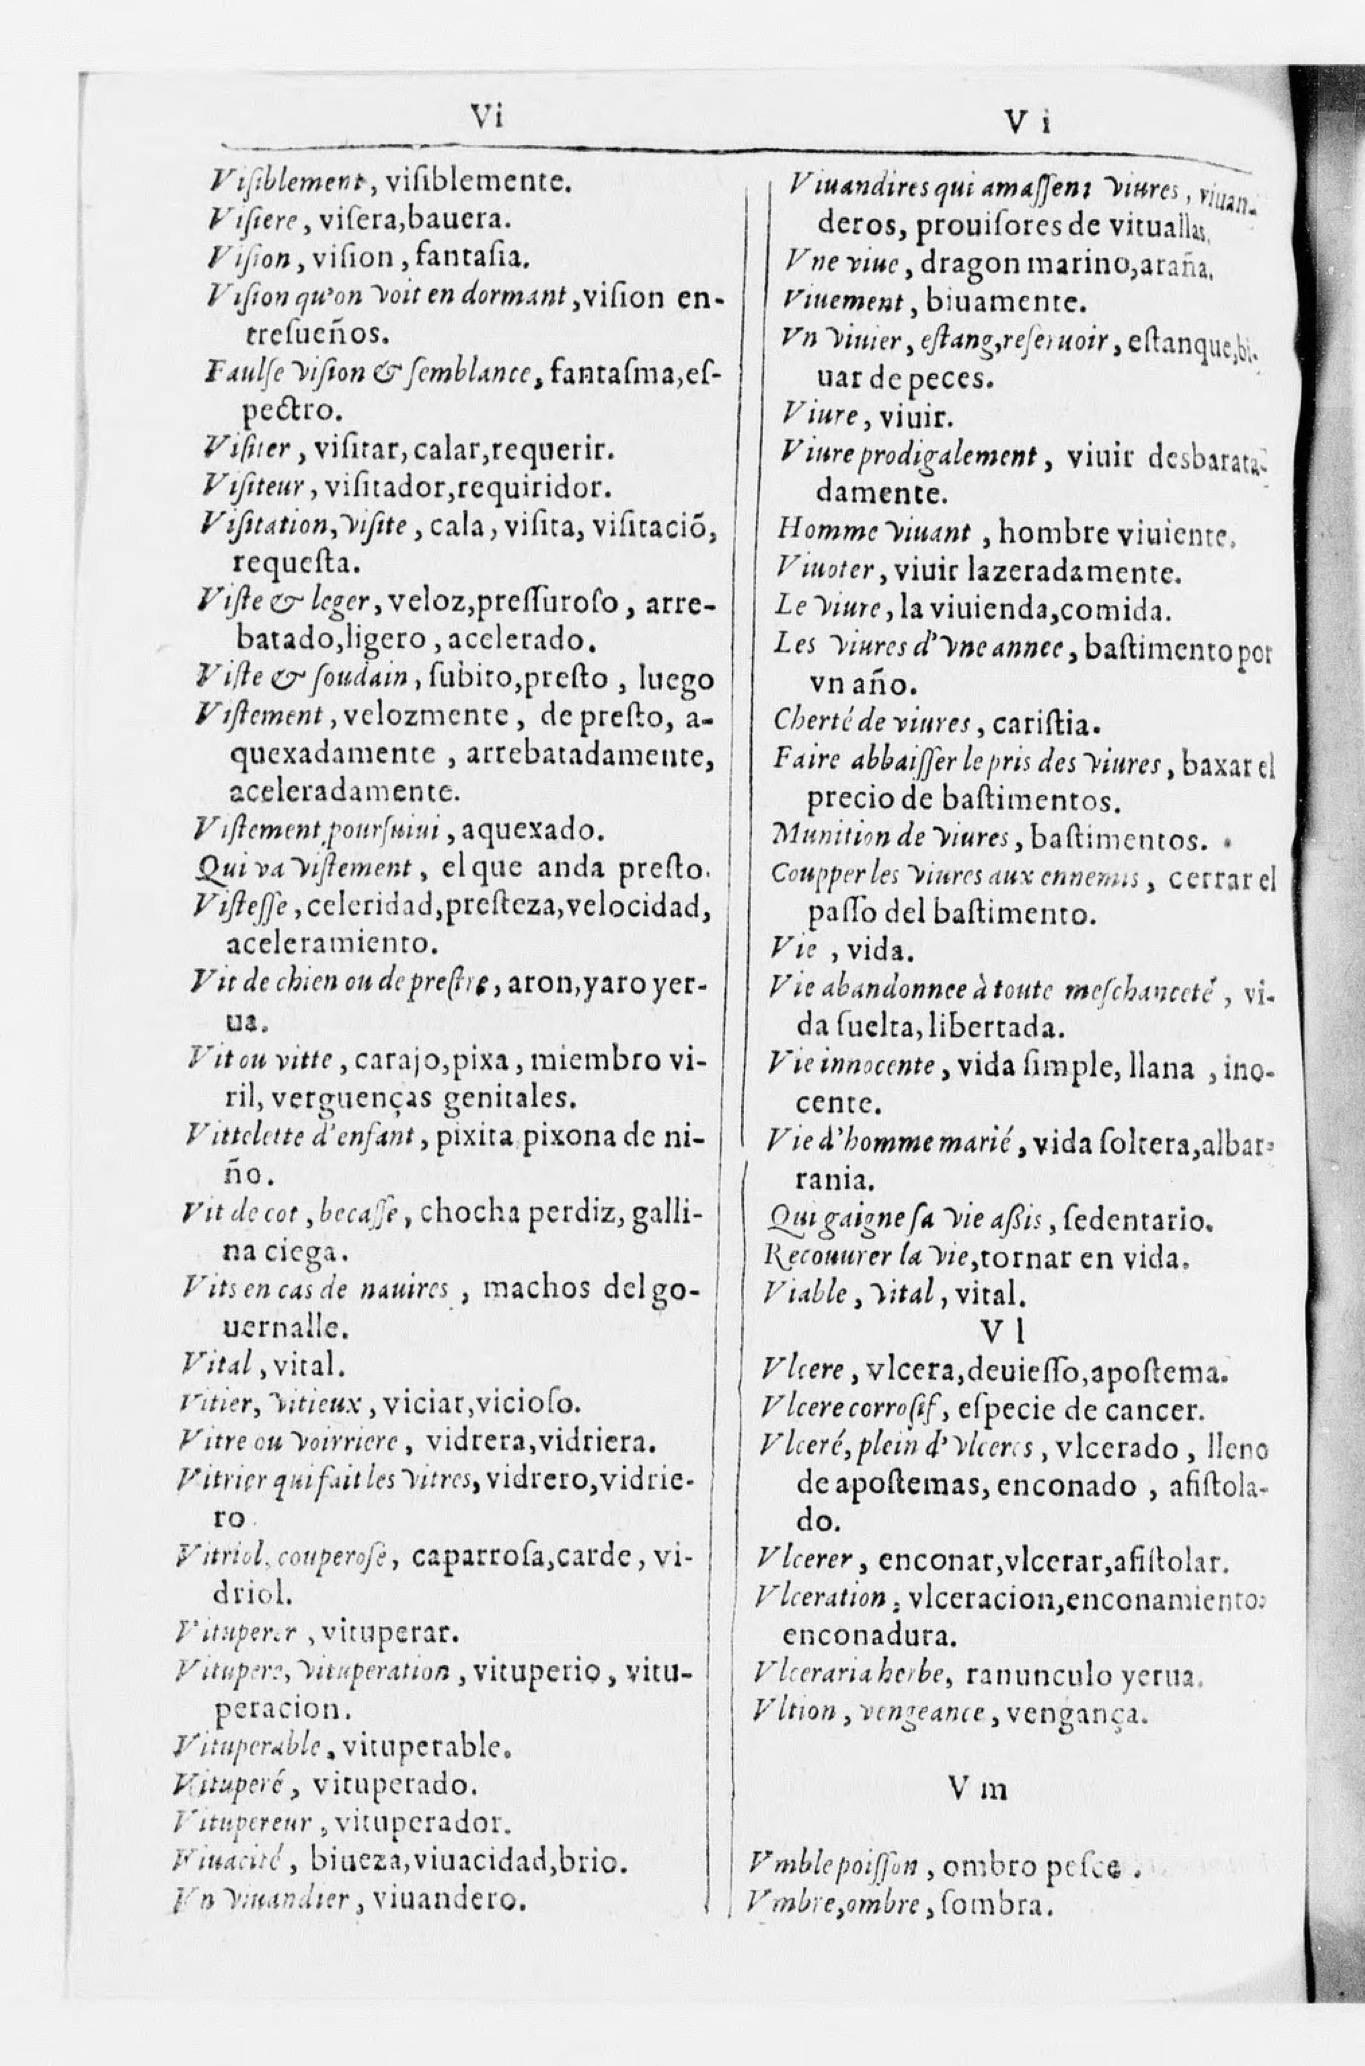 Vi
Viſiblement, viſiblemente.
Viſiere, viſera, bauera.
Viſion, viſion, fantaſia.
Viſion qu'on voit en dormant, viſion en-
treſueños.
Faulſe viſion & ſemblance, fantaſma, eſ-
pectro.
Viſiter, viſitar, calar, requerir.
Viſiteur, viſitador, requiridor.
Viſitation, viſite, cala, viſita, viſitaciõ,
requeſta.
Viſte & leger, veloz, preſſuroſo, arre-
batado, ligero, acelerado.
Viſte & ſoudain, ſubito, preſto, luego
Viſtement, velozmente, de preſto, a-
quexadamente, arrebatadamente,
aceleradamente.
Viſtement pourſuiui, aquexado.
Qui va viſtement, el que anda preſto.
Viſteſſe, celeridad, preſteza, velocidad,
aceleramiento.
Vit de chien ou de preſtre, aron, yaro yer-
ua.
Vit ou vitte, carajo, pixa, miembro vi-
ril, verguenças genitales.
Vittelette d'enfant, pixita pixona de ni-
ño.
Vit de cot, becaſſe, chocha perdiz, galli-
na ciega.
Vits en cas de nauires, machos del go-
uernalle.
Vital, vital.
Vitier, vitieux, viciar, vicioſo.
Vitre ou voirriere, vidrera, vidriera.
Vitrier qui fait les vitres, vidrero, vidrie-
ro.
Vitriol, couperoſe, caparroſa, carde, vi-
driol.
Vituperer, vituperar.
Vitupere, vituperation, vituperio, vitu-
peracion.
Vituperable, vituperable.
Vituperé, vituperado.
Vitupereur, vituperador.
Viuacité, biueza, viuacidad, brio.
Vn viuandier, viuandero.
V i
Viuandires qui amaſſent viures, viuan-
deros, prouiſores de vituallas.
Vne viue, dragon marino, araña.
Viuement, biuamente.
Vn viuier, eſtang, reſeruoir, eſtanque, bi-
uar de peces.
Viure, viuir.
Viure prodigalement, viuir desbarata-
damente.
Homme viuant, hombre viuiente.
Viuoter, viuir lazeradamente.
Le viure, la viuienda, comida.
Les viures d'vne annee, baſtimento por
vn año.
Cherté de viures, cariſtia.
Faire abbaiſſer le pris des viures, baxar el
precio de baſtimentos.
Munition de viures, baſtimentos.
Coupper les viures aux ennemis, cerrar el
paſſo del baſtimento.
Vie, vida.
Vie abandonnee à toute meſchanceté, vi-
da ſuelta, libertada.
Vie innocente, vida ſimple, llana, ino-
cente.
Vie d'homme marié, vida ſoltera, albar-
rania.
Qui gaigne ſa vie aßis, ſedentario.
Recouurer la vie, tornar en vida.
Viable, vital, vital.
V l
Vlcere, vlcera, deuieſſo, apoſtema.
Vlcere corroſif, eſpecie de cancer.
Vlceré, plein d'vlceres, vlcerado, lleno
de apoſtemas, enconado, afiſtola-
do.
Vlcerer, enconar, vlcerar, afiſtolar.
Vlceration, vlceracion, enconamiento,
enconadura.
Vlceraria herbe, ranunculo yerua.
Vltion, vengeance, vengança.
V m
Vmble poiſſon, ombro peſce.
Vmbre, ombre, ſombra.